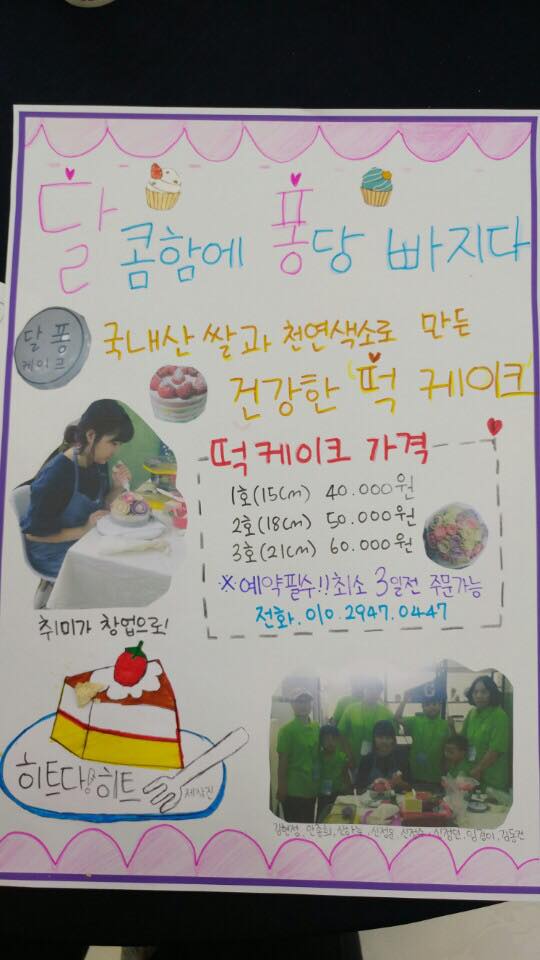 달콤함에 퐁당 빠지다
달퐁
케이크
국내산 쌀과 천연색소로 만든
건강한 떡 케이크
떡케이크 가격
1호(15cm) 40.000원
2호(18cm) 50.000원
3호(21cm) 60.000원
※예약필수!!최소 3일전 주문가능
전화.010.2947.0447
취미가 창업으로!
히트다히트
제작진
김현성, 안춘희,